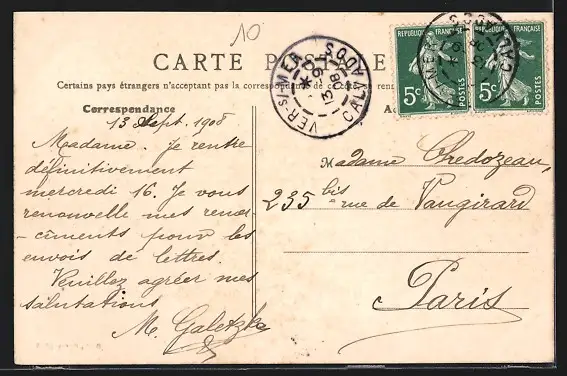 10
CARTE POSTALE
Certains pays étrangers n'acceptent pas la correspondance de ce côté
Correspondance
13 Sept. 1908
Madame. Je rentre
définitivement
mercredi 16. Je vous
renouvelle mes remer-
-cîments pour les
envois de lettres.
Veuillez agréer mes
salutations
M. Galetzka
VER-S-MER
CALVADOS
13
9
08
REPUBLIQUE FRANÇAISE
5c
POSTES
REPUBLIQUE FRANÇAISE
5c
POSTES
Madame Chedozeau,
235 bis rue de Vaugirard
Paris